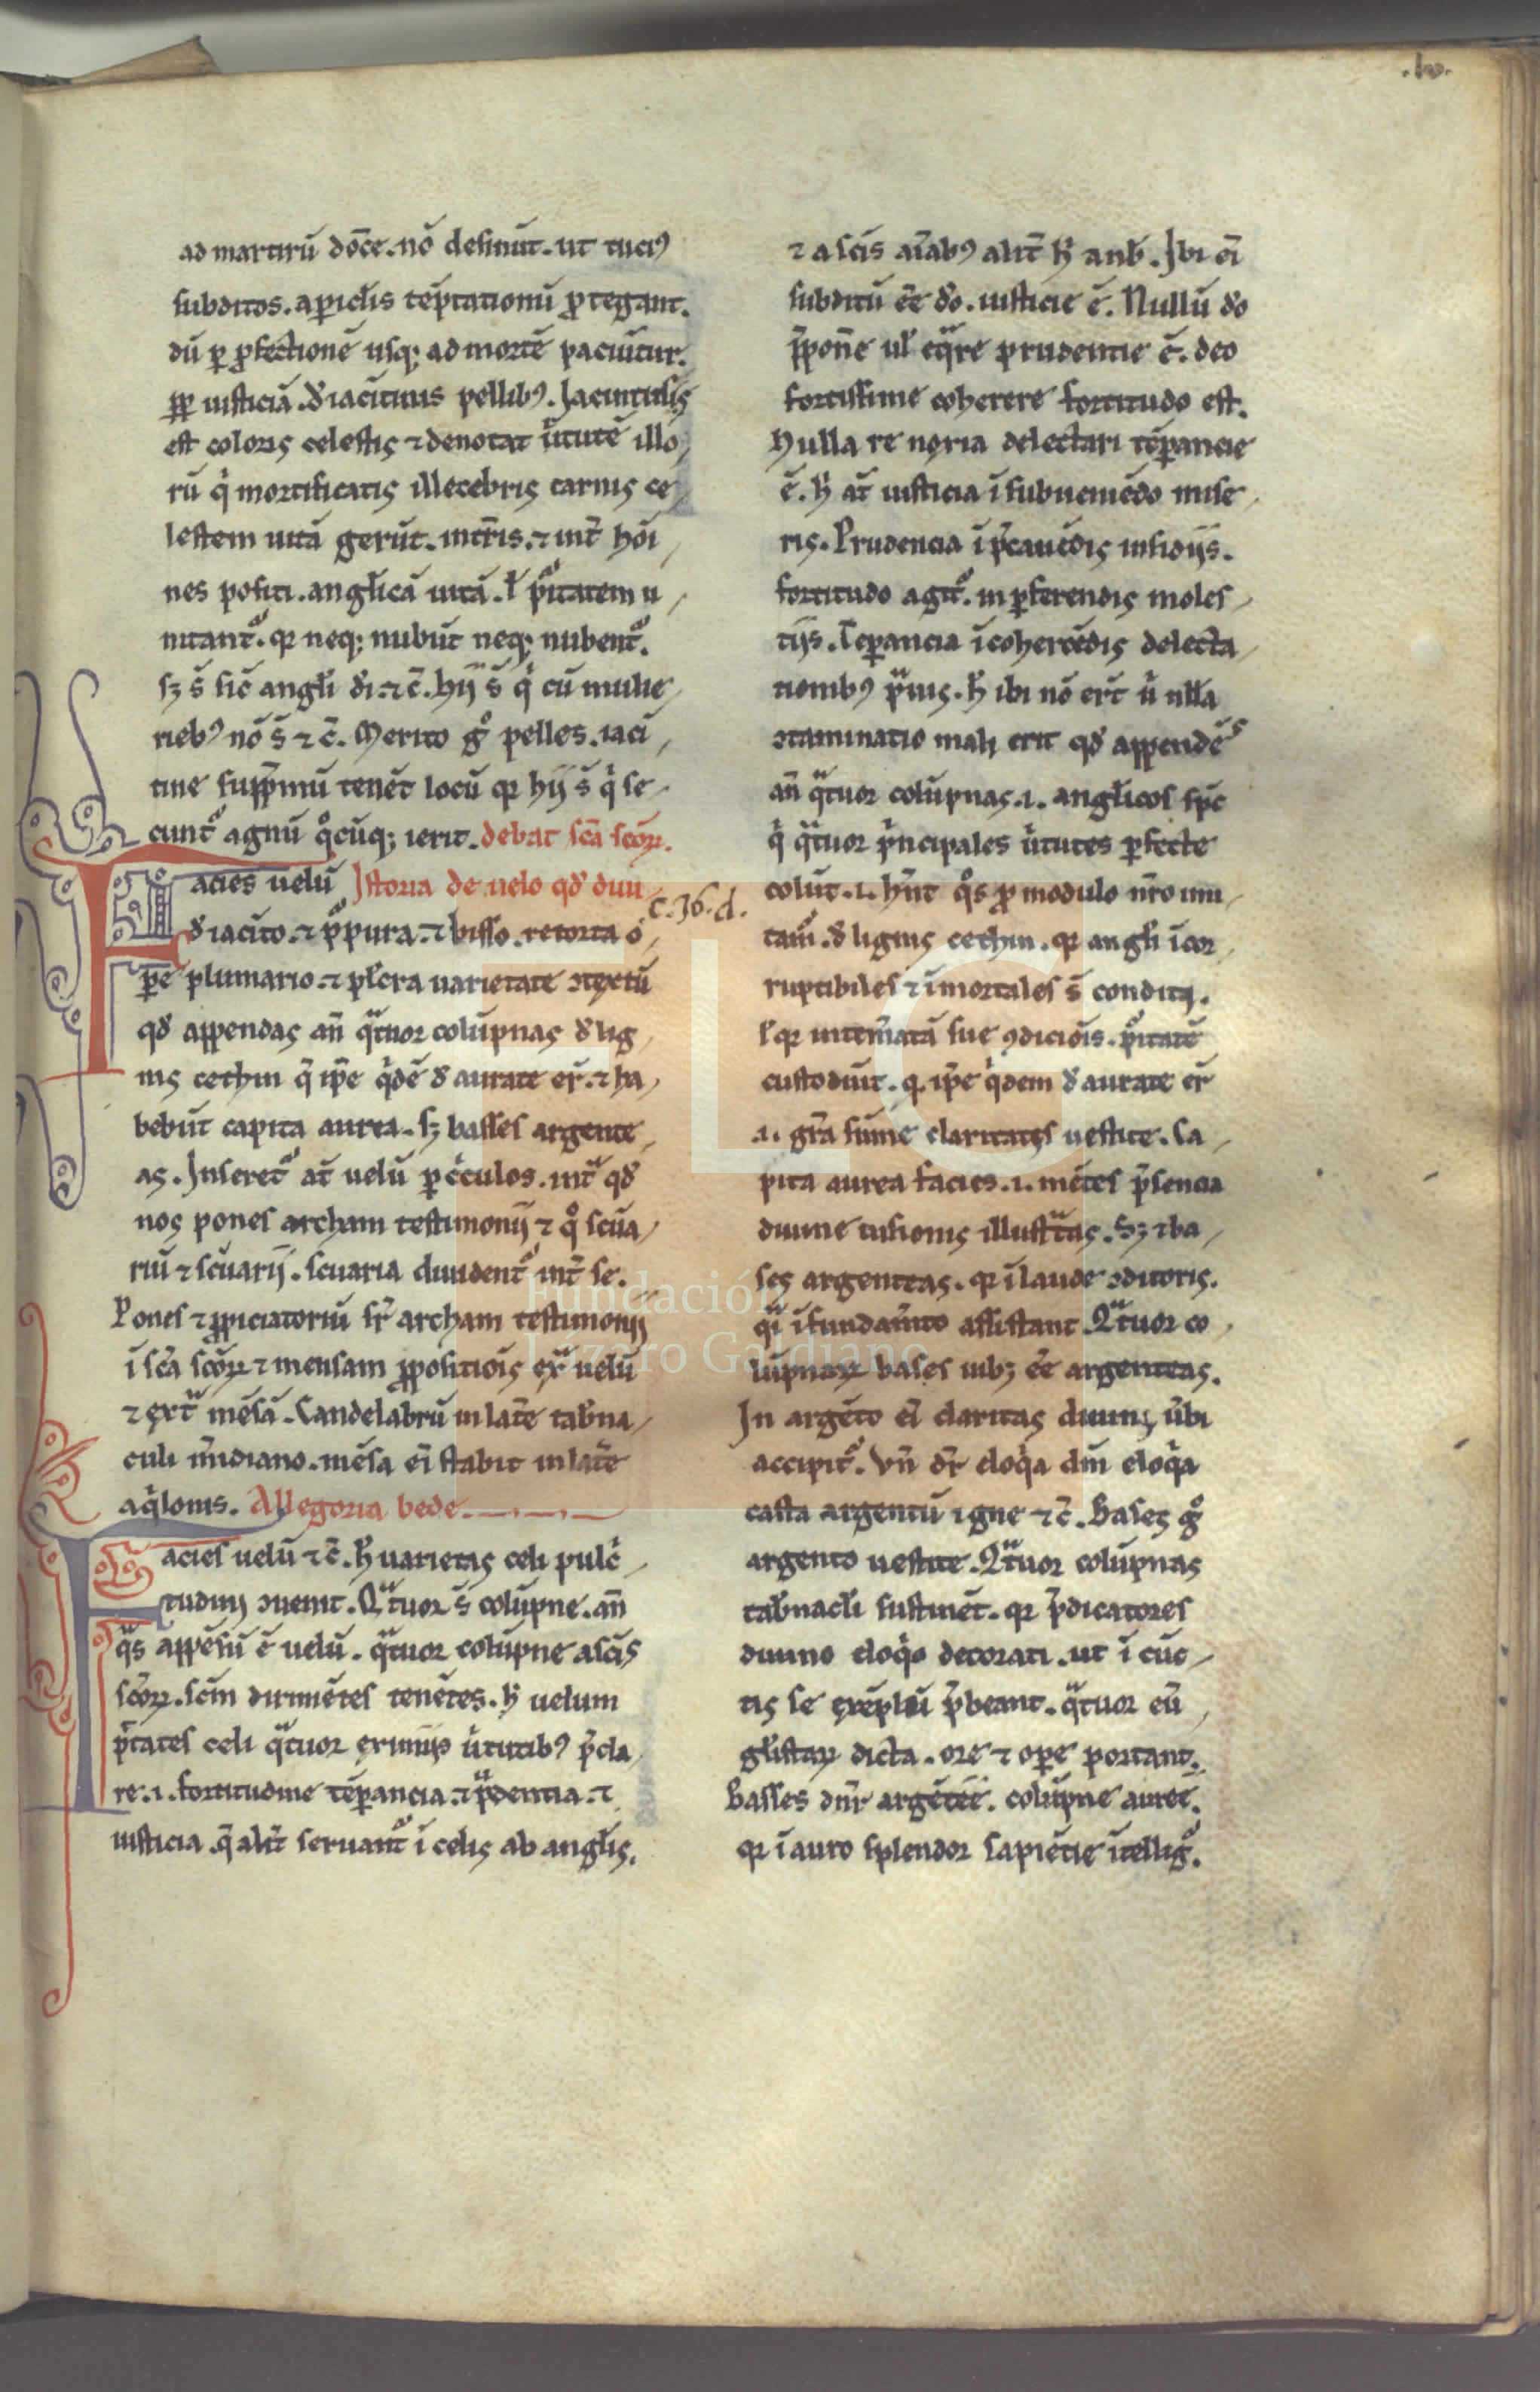 .lv.
ad martirū dōce. nō desinūt. ut tuciꝰ
subditos. a pic̄lis tēptationū ꝓtegant.
dū ꝑ ꝓfectionē usq; ad mortē paciūtur.
ꝓp̄ iusticiā. đ iacītinis pellibꝰ. Jacintinꝰ
est coloris celestis ⁊ denotat ūtutē illo
rū q̇ mortificatis illecebris carnis ce
lestem uitā gerūt. in tr̄is. ⁊ int̄ hōi
nes positi. angl̄icā uitā. ł pͥtatem u
nitant̉. qꝛ neq; nubūt neq; nubent̉.
sꝫ s̄ sic̄ angl̄i dī. ⁊ c̄. hij s̄ q̇ cū mulie
riebꝰ nō s̄ ⁊ c̄. Merito g̊ pelles. iaci
tine supp̄mū tenēt locū qꝛ hij s̄ q̇ se
cunt̉ agnū q̊cūq; ierit. debat sc̄a sc̄oꝝ.
Facies uelū Jstoria de uelo qđ diui
c. 36. d.
đ iacīto. ⁊ p̉pura. ⁊ bisso. retorta o
ꝑe plumario. ⁊ pl̄cra uarietate ɔtextū
qđ appendas añ q̈tuor colūpnas đ lig
nis cethin q̄ ip̄e q̇dē đ aurate er̄. ⁊ ha
bebūt capita aurea. sꝫ basses argente
as. Jnseret̉ at̄ uelū ꝑ c̄culos. int̄ qđ
nos pones archam testimonij ⁊ q̊ sc̄ua
riū ⁊ sc̄uarij. sc̄uaria diuident̉ int̄ se.
Pones ⁊ ꝓpiciatoriū sr̄ archam testimonij
ī sc̄a sc̄oꝝ ⁊ mensam ꝓpositiōis ext̄ uelū
⁊ ext̄ mēsā. Candelabrū in lat̄e tab̄na
culi m̄idiano. mēsa eī stabit in lat̄e
aq̇lonis. Allegoria bede.
Facies uelū ⁊ c̄. h̄ uarietas celi pulc̄
tudinj ɔuenit. Q̈tuor s̄ colūpne. añ
q̈s appēsū ē uelū. q̈tuor colūpne a sc̄is
sc̄oꝝ. sc̄m dirimētes tenētes. h̄ uelum
p̄tates celi q̈tuor eximijs ūtutibꝰ p̄cla
re. .i. fortitudine tēꝑancia. ⁊ p̈dentia. ⁊
iusticia. q̄ alit̄ seruant̉ ī celis ab angl̄is.
⁊ a sc̄is aīabꝰ alit̄ h̄ a nob̄. Jbi eī
subditū eē dō. iusticie ē. Nullū dō
p̄pon̄e ul̄ eq̈re prudentie ē. deo
fortissime coherere fortitudo est.
Nulla re noxia delectari tēꝑancie
ē. h̄ at̄ iusticia ī subueniēdo mise
ris. Prudencia ī p̄cauēdis insidijs.
fortitudo agit̉. in ꝑferendis moles
tijs. Tēꝑancia ī cohercēdis delecta
tionibꝰ p̈uis. h̄ ibi nō er̄t ū nll̄a
ɔtaminatio mali erit qđ appendēs
añ q̈tuor colūpnas .i. angl̄icos sp̄c
q̇ q̈tuor ṗncipales ūtutes ꝑfecte
colūt .i. hn̄t q̊s ꝓ modulo nr̄o imi
tam̉. đ lignis cethin. qꝛ angl̄i īcor
ruptibiles ⁊ īmortales s̄ conditi.
ł qꝛ intem̄atā sue ɔdiciōis. p̉itatē
custodiūt. q ip̄e q̇dem đ aurate er̄
.i. gr̄a sūme claritatis uestite. Ca
pita aurea facies .i. mētes p̄sencia
diuine uisionis illust̄tas. Sꝫ ⁊ ba
ses argenteas. qꝛ ī laude ɔditoris.
q̈i ī fundam̄to assistant Q̈tuor co
lūpnaꝝ bases iubꝫ eē argenteas.
Jn argēto eī claritas diuinj ūbi
accipit̉. Vñ dr̄ eloq̇a dn̄i eloq̇a
casta argentū igne ⁊ c̄. Bases g̊
argento uestite. Q̈tuor colūpnas
tab̄nacl̄i sustinēt. qꝛ p̄dicatores
diuino eloq̇o decorati. ut ī cūc
tis se exēplū p̄beant. q̈tuor eū
gl̄istaꝝ dicta. ore ⁊ oꝑe portant.
Basses dn̄r argētee. colūpne auree.
qꝛ ī auro splendor sapiētie ītellig̉.
FLG
Fundación
Lázaro Galdiano